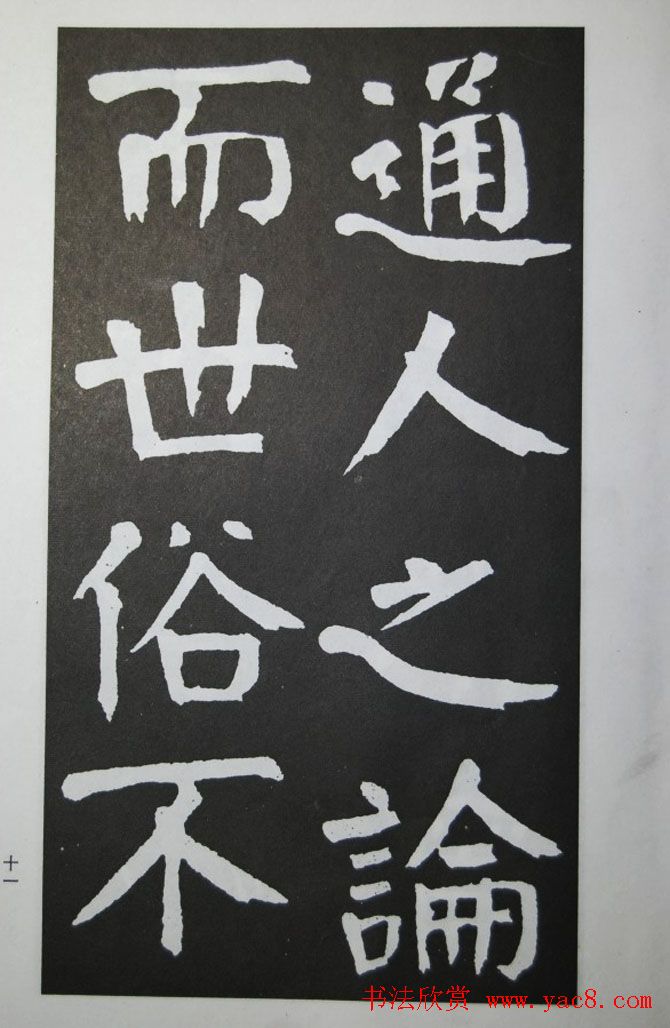 通人之論
而世俗不
十一
书法欣赏 www.yac8.com